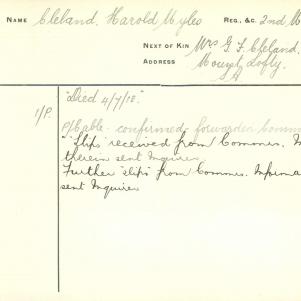 NAME Cleland, Harold Myles REG., &C. 2nd
NEXT OF KIN Mrs G. F. Cleland,
ADDRESS Mount Lofty.
1/P. "Died 4/7/18."
P/Cable confirmed forwarded
"Slips" received from Commrs.
therein sent Inquirer.
Further "slips" from Commrs. Informa
sent Inquirer